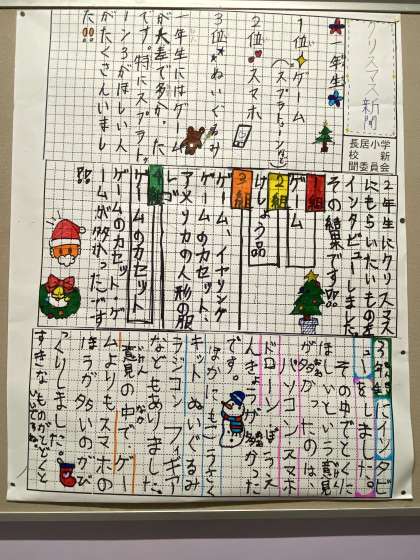 クリスマス新聞
長居小学
校 新
聞委員会
一年生
1位 ゲーム
(スプラトゥーンなど)
2位 スマホ
3位 ぬいぐるみ
一年生にはゲーム
が大差で多かった
です。特にスプラトゥ
ーン3がほしい人
がたくさんいまし
た!!
2年生にクリスマス
にもらいたいものを
インタビューしました
その結果です
1組
ゲーム
2組
けしょう品
3組
ゲーム、イヤリング
ゲームのカセット、
アメリカの人形の服
レゴ
4組
ゲームのカセット
ゲームのカセット、ゲ
ームが多かったです
!!
3年生にインタビ
ューをしました。
その中でとくに
ほしいという意見
が多かったのは、
パソコン スマホ
ドローン ぼうえ
んきょうが多かった
です。
ほかにも
キット ぬいぐるみ
ラジコン フィギア
などもありました。
意見の中で、ゲー
ムよりもスマホの
ほうが多いのがび
っくりしました。
すきなものがとどくと
いいですね。